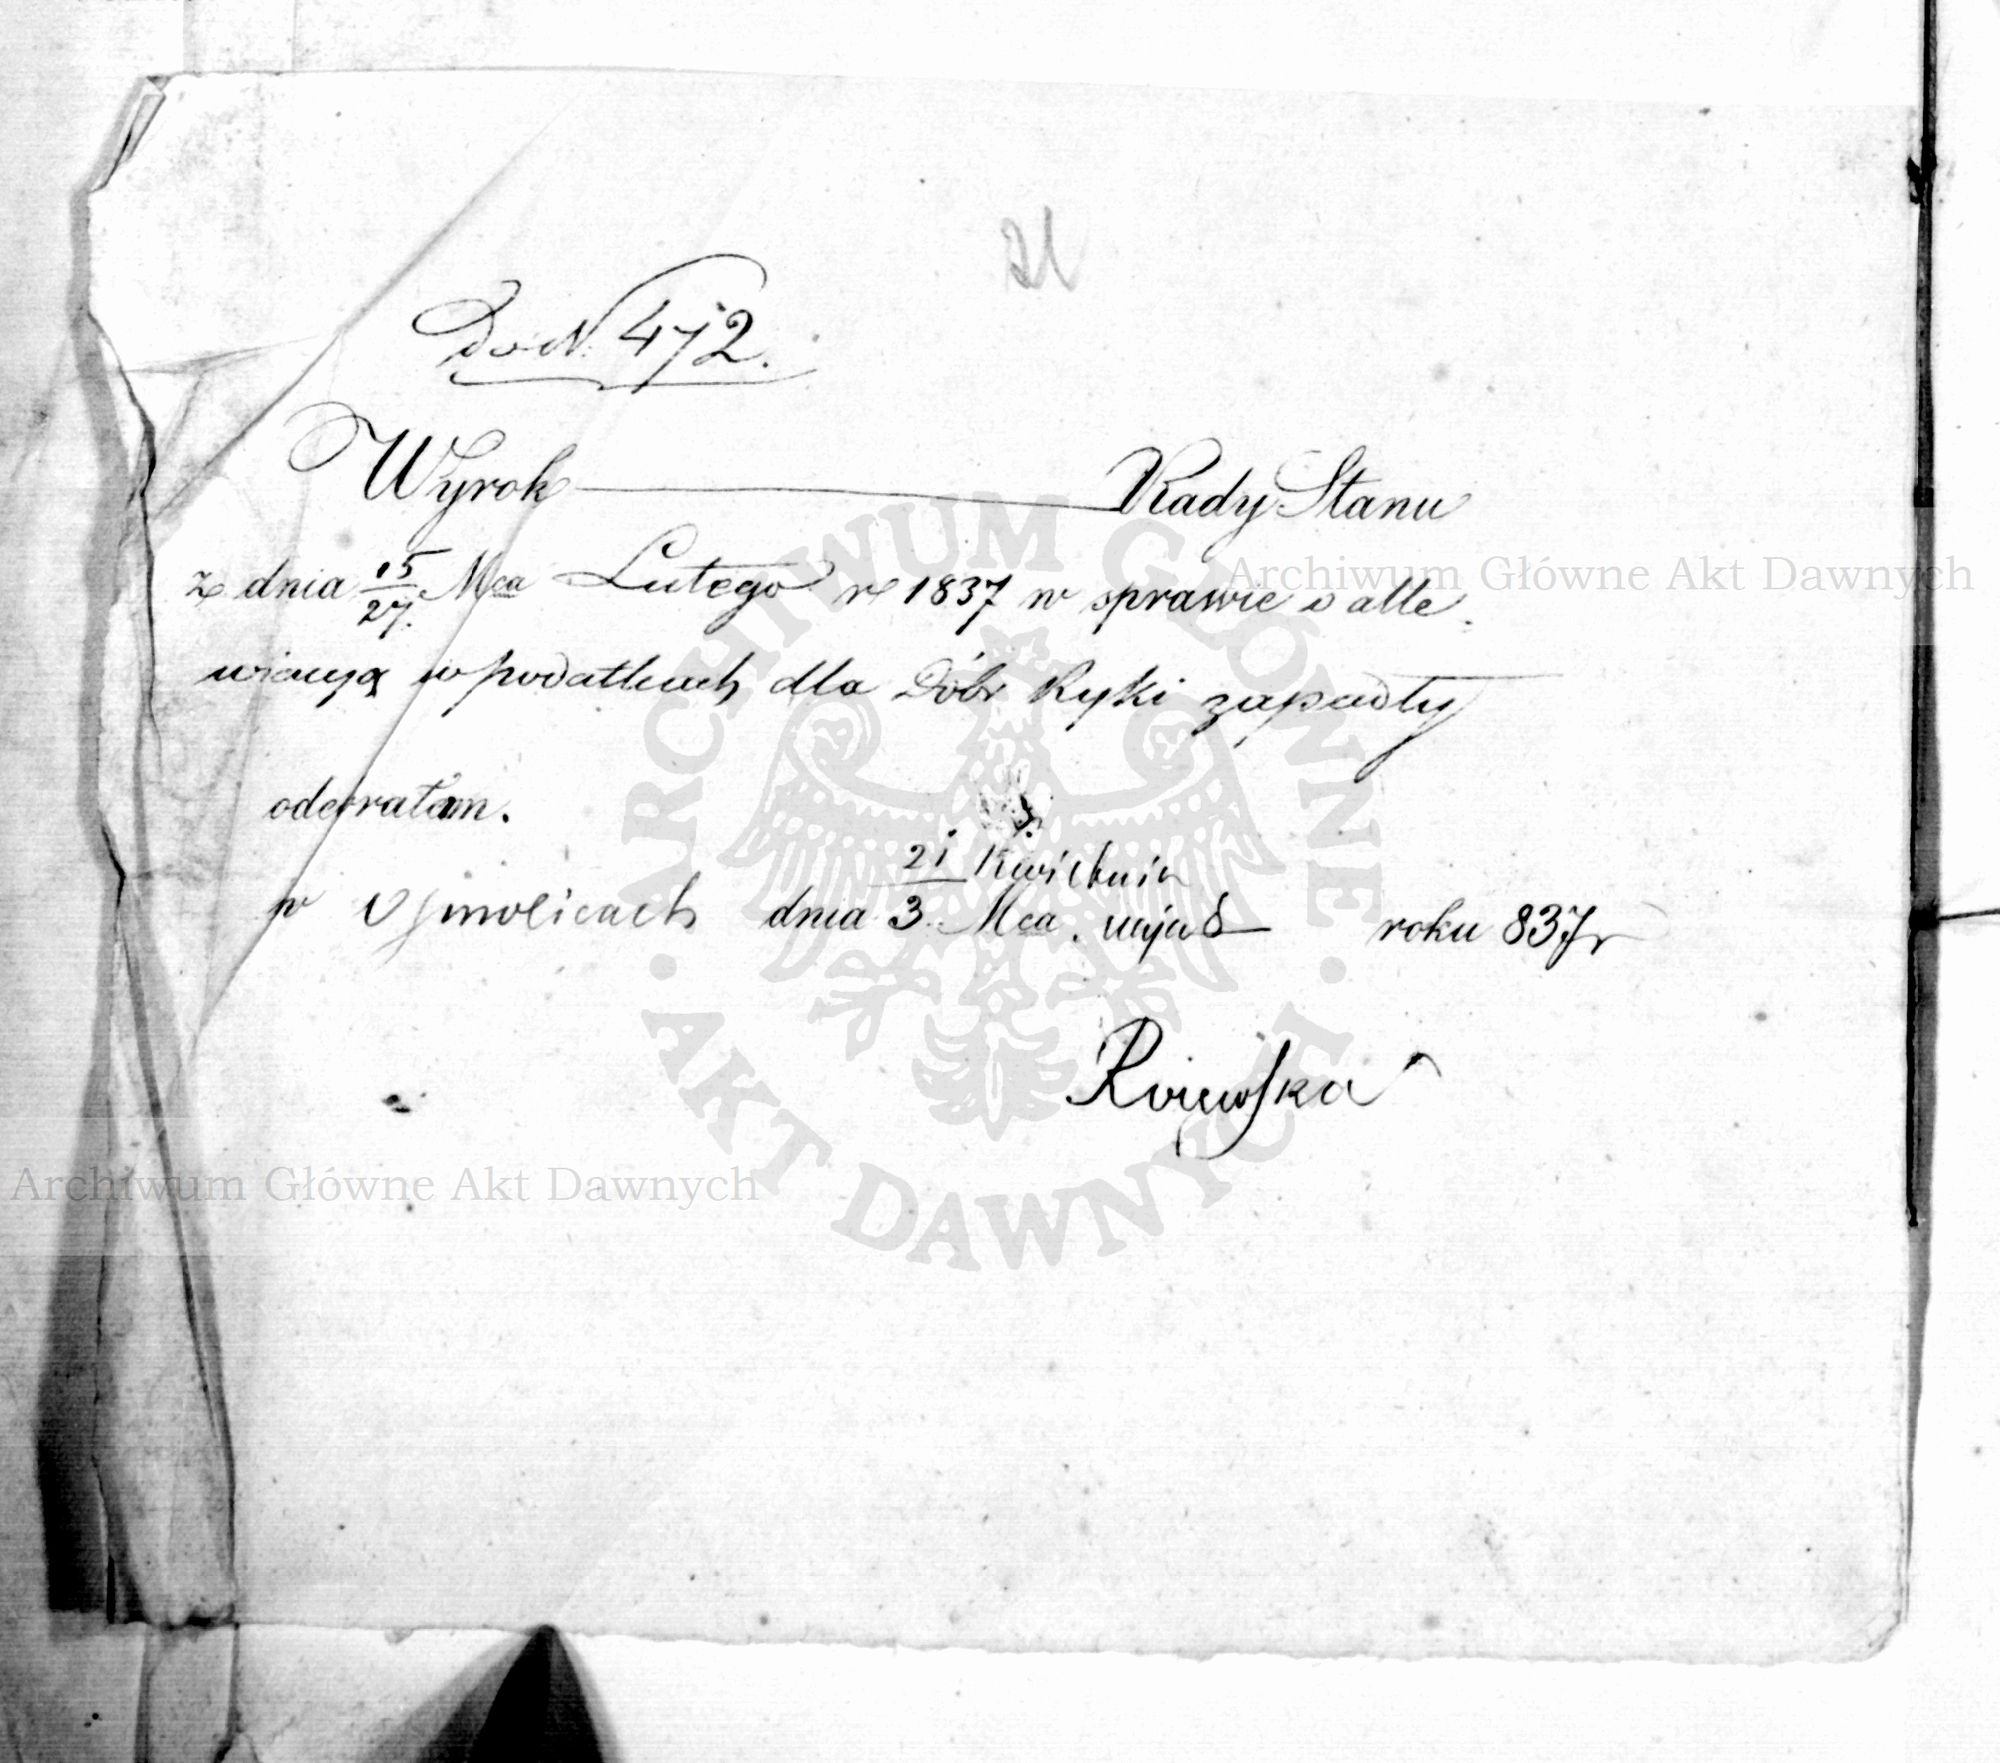 21
Do N. 472.
Wyrok Rady Stanu
z dnia 15/27 Mca Lutego r 1837 w sprawie o alle
wiacyą w podatkach dla Dóbr Ryki zapadły
odebrałam.
21 Kwietnia
w dnia 3 Mca maja roku 837 r
Archiwum Główne Akt Dawnych
Archiwum Główne Akt Dawnych
ARCHIWUM GŁÓWNE · AKT DAWNYCH ·